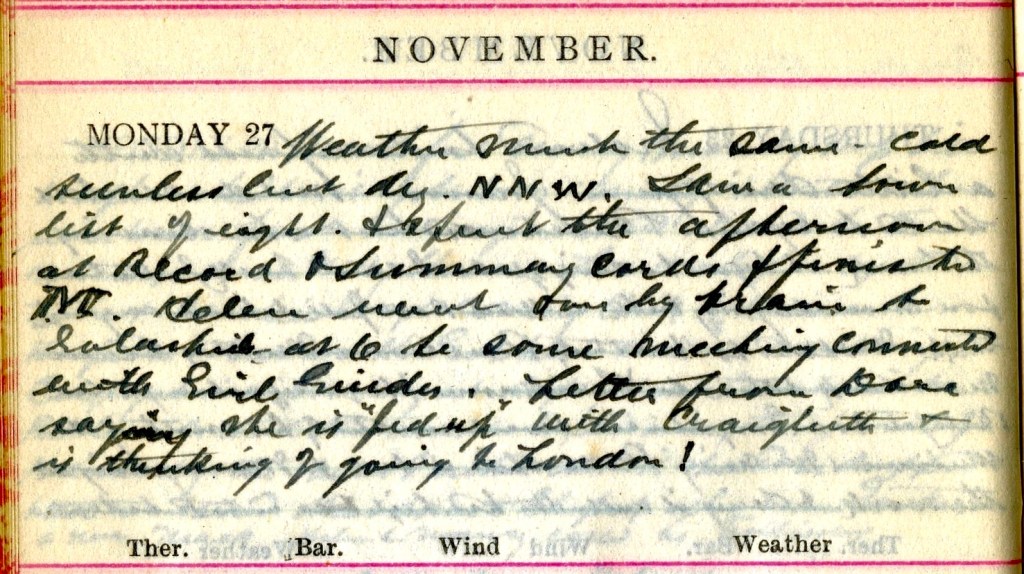 NOVEMBER.
MONDAY 27 Weather much the same - cold
sunless but dry. NNW. Saw a town
list of eight. & spent the afternoon
at Record & Summary Cards &
Helen went down by train to
Galashiels at 6 to some meeting connected
with Girl Guides. Letter from Dora
saying she is "fed up" with Craigleith &
is thinking of going to London!
Ther. Bar. Wind Weather